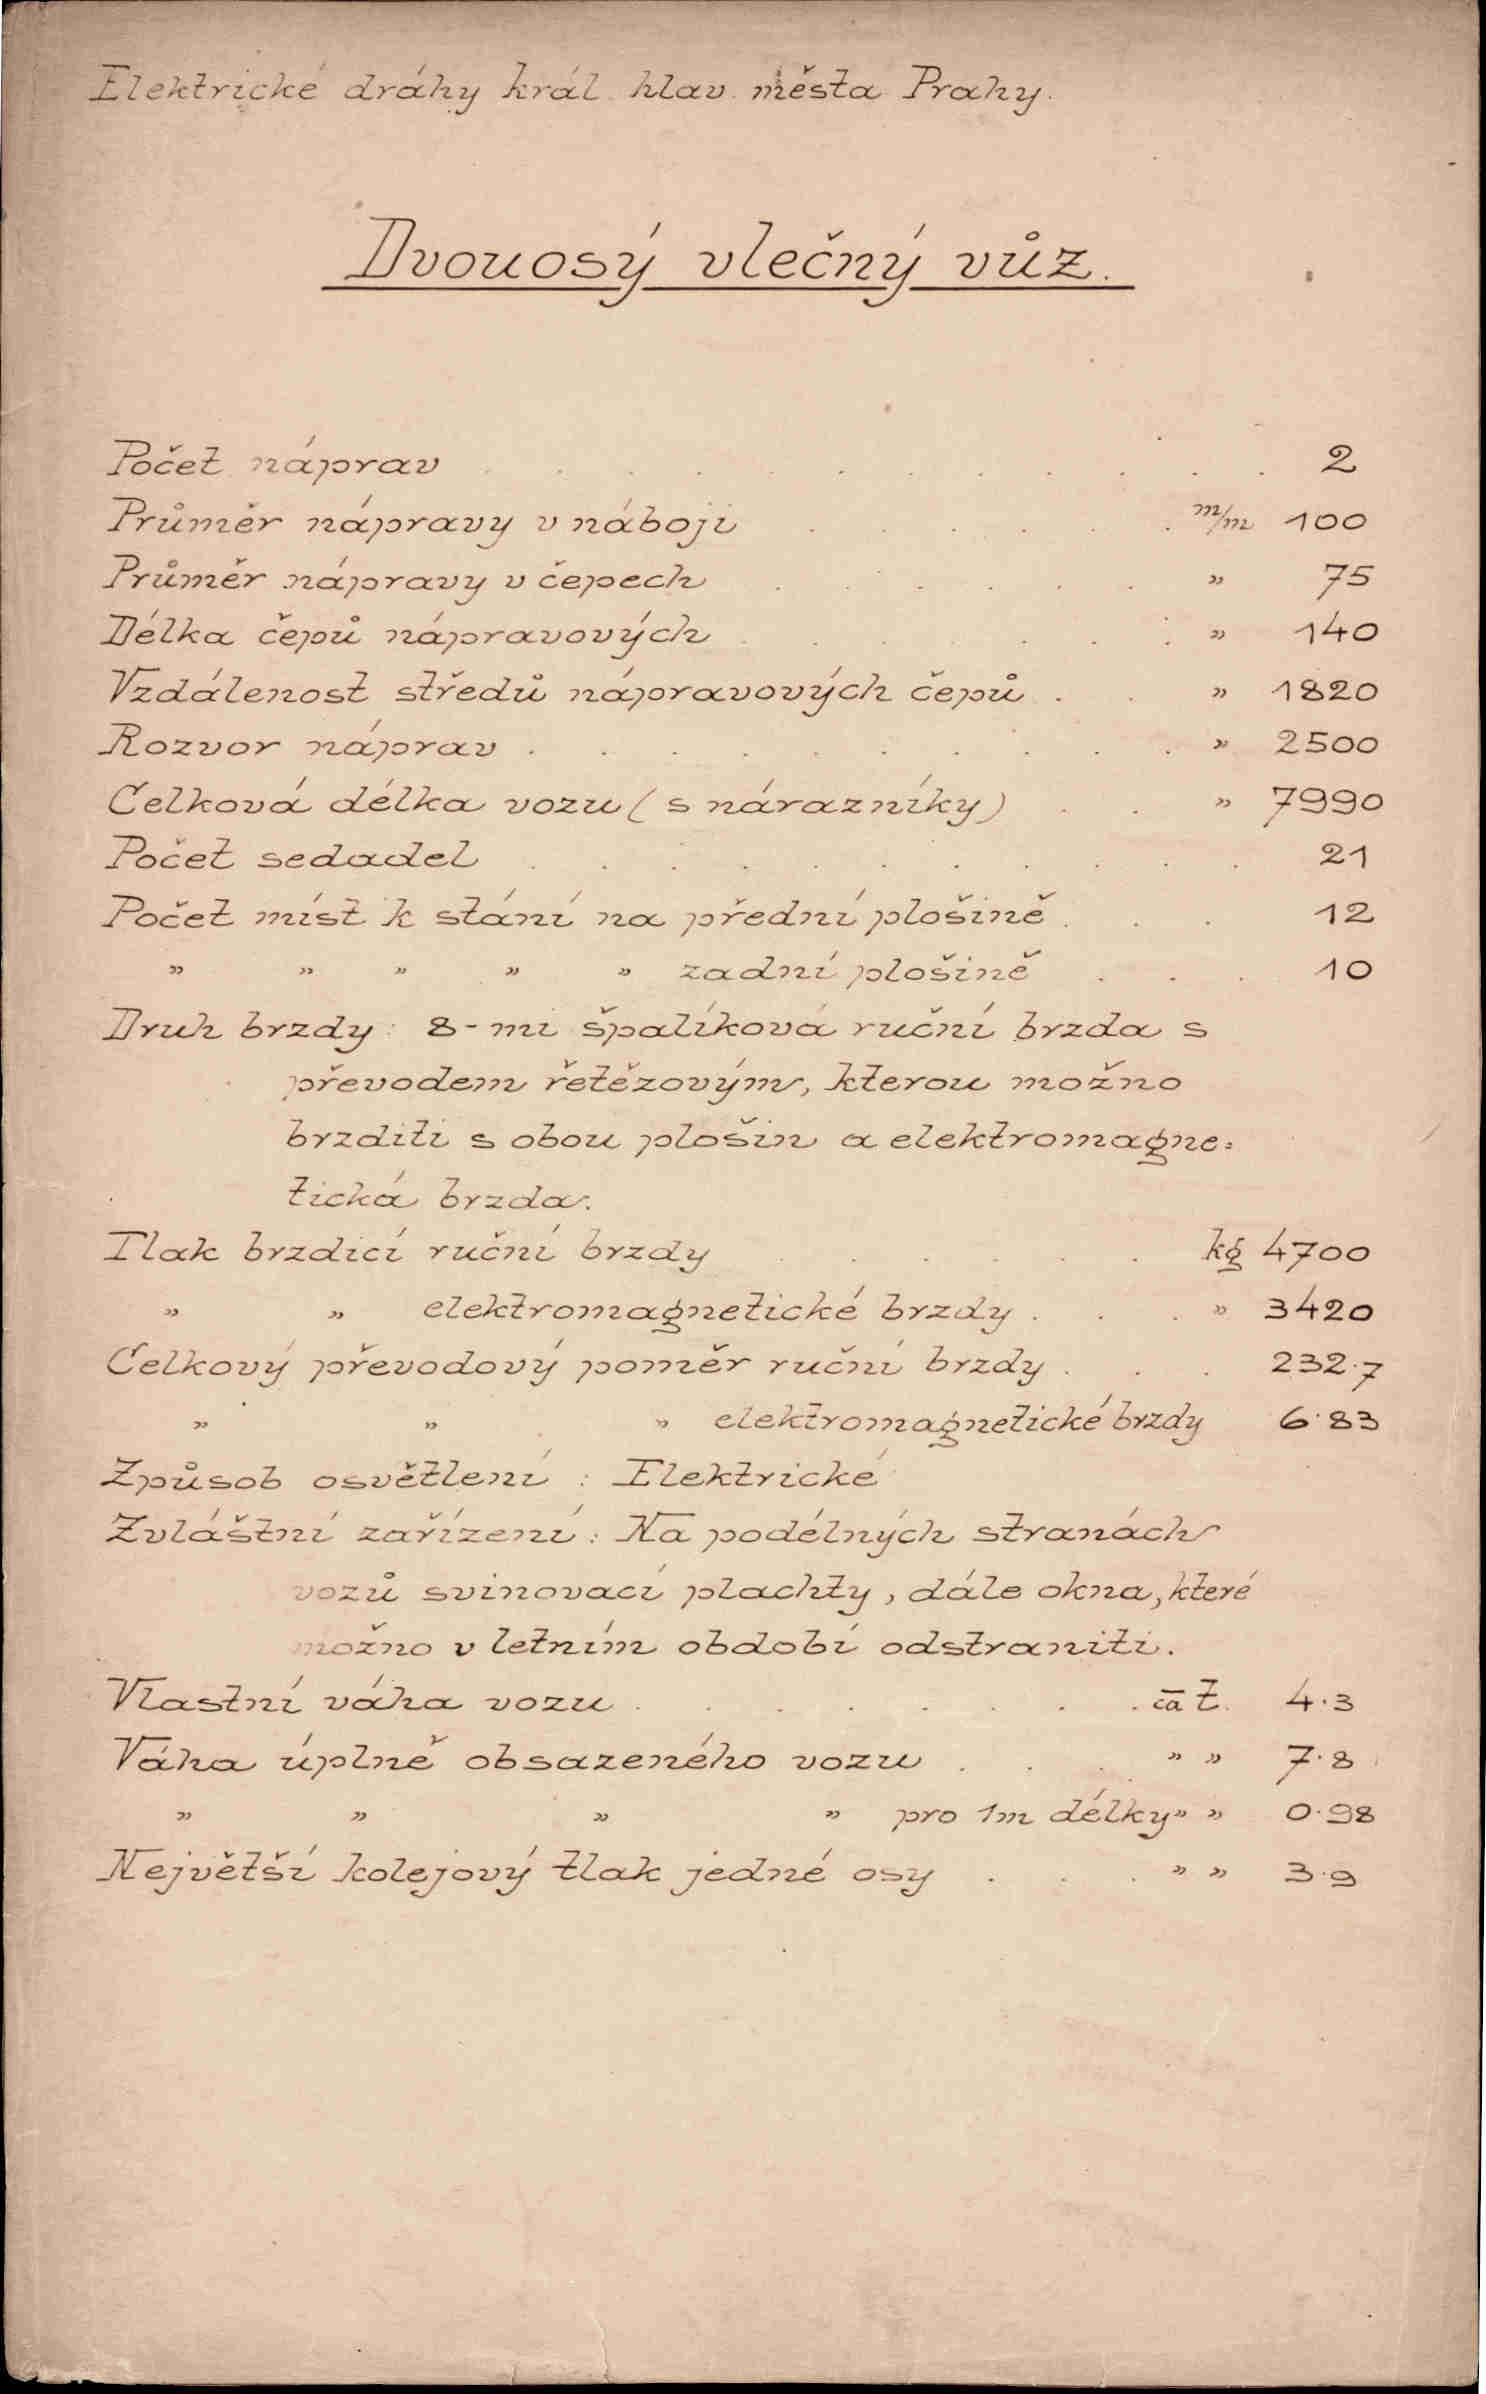 Elektrické dráhy král. hlav. města Prahy.
Dvouosý vlečný vůz.
Počet náprav . . . . . . . . . . . . 2
Průměr nápravy v náboji . . . . . . m/m 100
Průměr nápravy v čepech . . . . . . " 75
Délka čepů nápravových . . . . . . . " 140
Vzdálenost středů nápravových čepů . . " 1820
Rozvor náprav . . . . . . . . . . " 2500
Celková délka vozu (s nárazníky) . . " 7990
Počet sedadel . . . . . . . . . . . 21
Počet míst k stání na přední plošině . . . 12
" " " " " zadní plošině . . . 10
Druh brzdy: 8-mi špalíková ruční brzda s
převodem řetězovým, kterou možno
brzditi s obou plošin a elektromagne=
tická brzda.
Tlak brzdicí ruční brzdy . . . . . . kg 4700
" " elektromagnetické brzdy . . . " 3420
Celkový převodový poměr ruční brzdy . . . 232·7
" " " elektromagnetické brzdy 6·83
Způsob osvětlení : Elektrické
Zvláštní zařízení : Na podélných stranách
vozů svinovací plachty, dále okna, které
možno v letním období odstraniti.
Vlastní váha vozu . . . . . . . . ca t. 4·3
Váha úplně obsazeného vozu . . . " " 7·8
" " " " pro 1m délky " " 0·98
Největší kolejový tlak jedné osy . . . " " 3·9